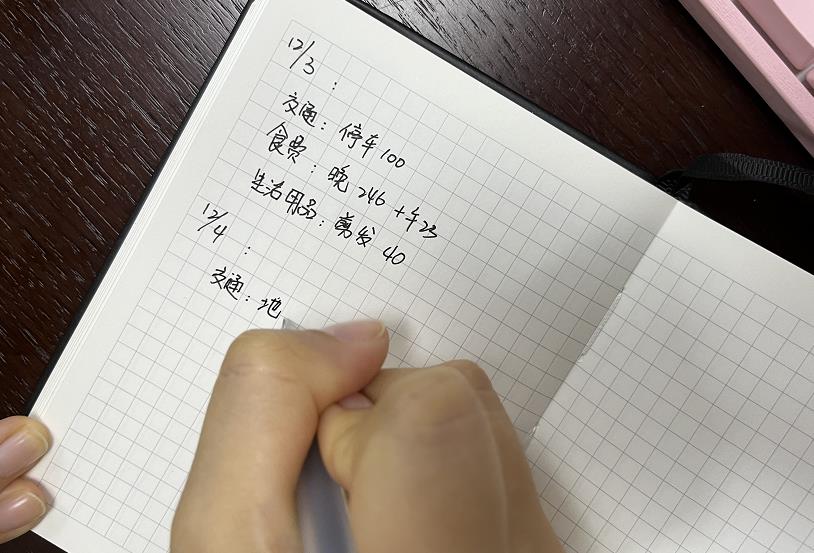 12/3 :
交通: 停车100
食费: 晚 246 + 午23
生活用品: 剪发 40
12/4 :
交通: 地